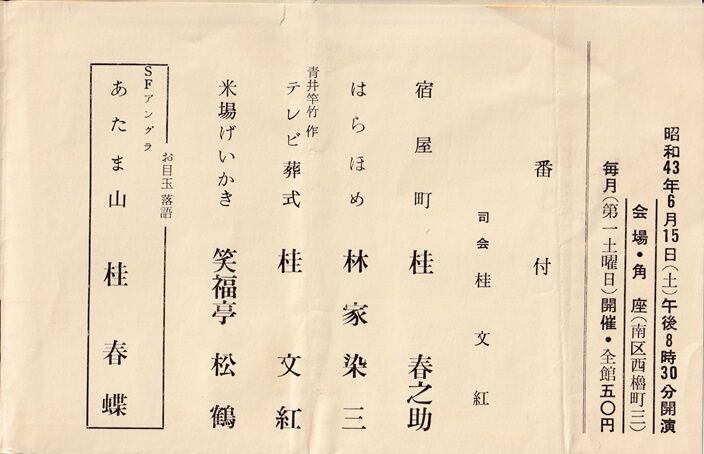 昭和43年6月15日(土)午後8時30分開演
会場・角座(南区西櫓町三)
毎月(第一土曜日)開催・全館五〇円
番付
司会 桂文紅
宿屋町 桂春之助
はらほめ 林家染三
青井竿竹 作
テレビ葬式 桂文紅
米場げいかき 笑福亭松鶴
お目玉落語
SFアングラ
あたま山 桂春蝶